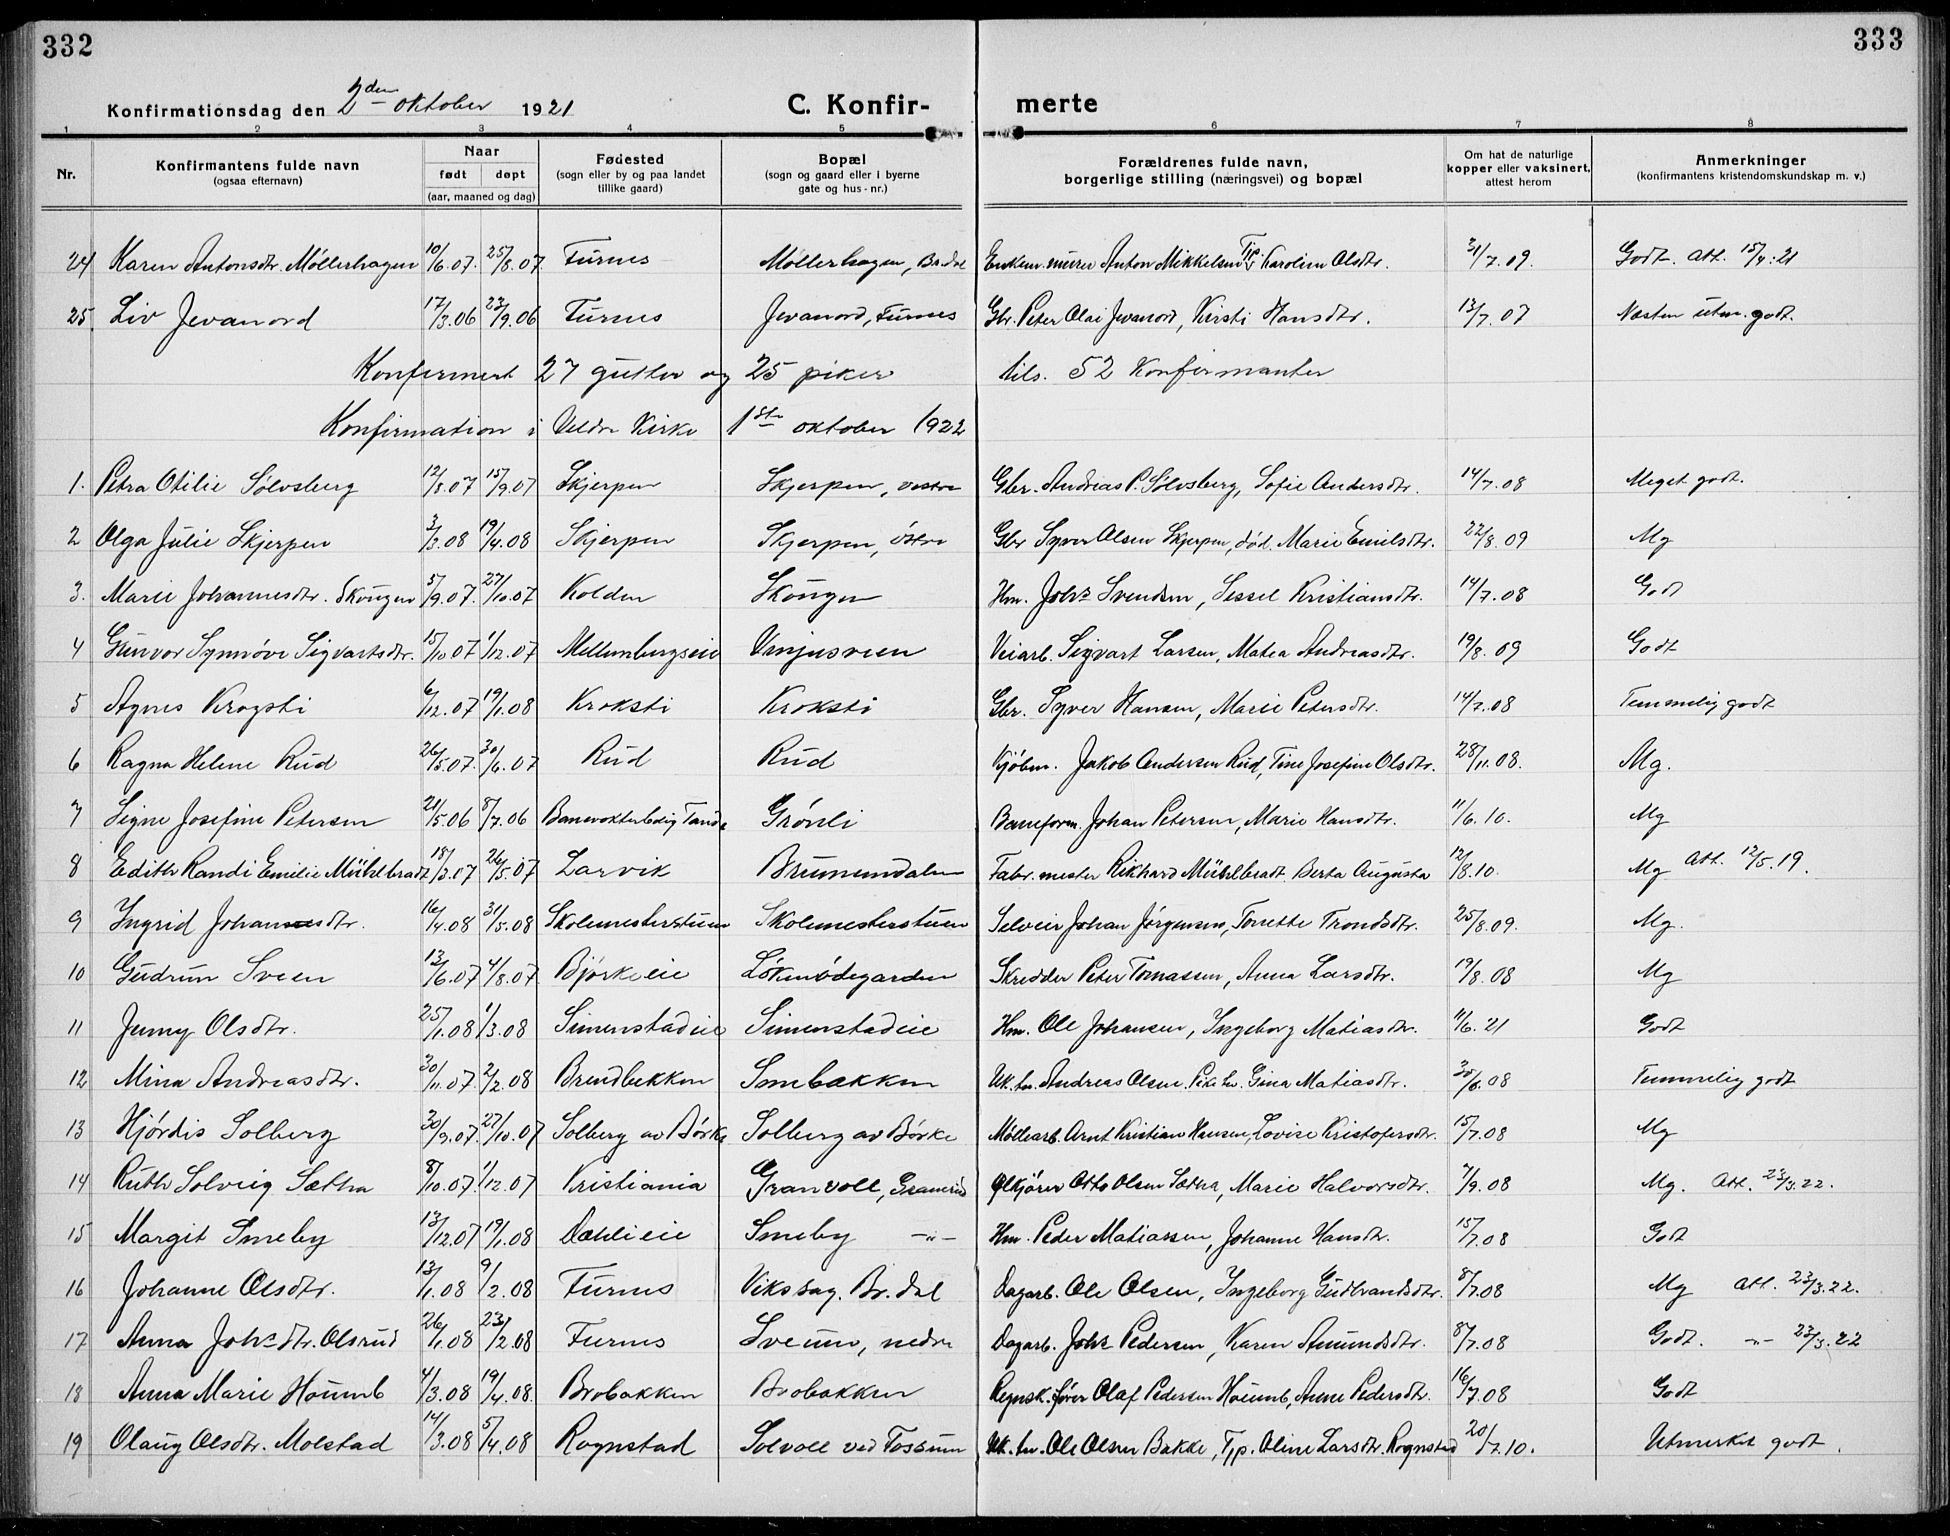 332
333
Konfirmationsdag den 2den oktober 1921
C. Konfirmerte
1 2 3 4 5 6 7 8
Nr. Konfirmantens fulde navn (ogsaa efternavn) Naar født døpt (aar, maaned og dag) Fødested (sogn eller by og paa landet tillike gaard) Bopæl (sogn og gaard eller i byerne gate og hus-nr.) Forældrenes fulde navn, borgerlige stilling (næringsvei) og bopæl Om hat de naturlige kopper eller vaksinert, attest herom Anmerkninger (konfirmantens kristendomskundskap m. v.)
24 Karen Antonsdtr. Møllerhagen 10/6.07. 25/8.07 Furnes Møllerhagen, Br.dal Enkem. murer Anton Mikkelsen Karoline Olsdtr. 31/7.09. Godt. Att. 15/4.21
25. Liv Jevanord 17/3.06 23/9.06 Furnes Jevanord, Furnes Gbr. Peter Olai Jevanord, Kirsti Hansdtr. 13/7.07 Næsten utm. godt.
Konfirmert 27 gutter og 25 piker tils. 52 Konfirmanter
Konfirmation i Veldre Kirke 1ste oktober 1922
1. Petra Otilie Sølvsberg 12/8.07 15/9.07 Skjerpen Skjerpen, vestre Gbr. Andreas P. Sølvsberg, Sofie Andersdtr. 14/7.08 Meget godt.
2 Olga Julie Skjerpen 3/3.08 19/4.08 Skjerpen Skjerpen, østre Gbr Syver Olsen Skjerpen, død. Marie Emilsdtr. 22/8.09 Mg
3. Marie Johannesdtr. Skougen 5/9.07. 27/10.07 Kolden Skougen Hm. Johs Svendsen, Sessel Kristiansdtr. 14/7.08 Godt
4 Gunvor Synnøve Sigvartsdtr. 15/10.07 1/12.07 Mellumbergseie Vinjusveen Veiarb. Sigvart Larsen, Matea Andreasdtr. 19/8.09 Godt
5 Agnes Krogsti 6/12.07 19/1.08 Kroksti Kroksti Gbr. Syver Hansen, Marie Petersdtr. 14/7.08 Temmelig godt
6 Ragna Helene Rud 26/5.07. 30/6.07 Rud Rud Kjøbm. Jakob Andersen Rud, Tine Josefine Olsdtr. 28/11.08. Mg.
7 Signe Josefine Petersen 21/5.06 8/7.06 Banevokterbolig Tande Grønli Baneform. Johan Petersen, Marie Hansdtr. 11/6.10. Mg
8 Edith Randi Emilie Mühlbradt 18/3.07 26/5.07 Larvik Brumunddalen Fabr.mester Rikhard Mühlbradt Berta Augusta 12/8.10. Mg Att. 12/5.19.
9 Ingrid Johansdtr. 16/4.08 31/5.08 Skolemesterstuen Skolemesterstuen Selveier Johan Jørgensen, Tonette Trondsdtr. 25/8.09. Mg.
10 Gudrun Sveen 13/6.07 4/8.07. Bjørkeeie Løkenødegarden Skredder Peter Tomassen, Anna Larsdtr. 19/8.08 Mg
11 Jenny Olsdtr. 25/1.08 1/3.08 Simenstadeie Simenstadeie Hm. Ole Johansen, Ingeborg Matiasdtr. 11/6.21 Godt
12 Mina Andreasdtr. 30/11.07. 2/2.08 Brendbekken Smebakken Uk. tm. Andreas Olsen. Pike tm. Gina Matiasdtr. 30/6.08 Temmelig godt
13 Hjørdis Solberg 30/9.07. 27/10.07 Solberg av Børke Solberg av Børke Møllearb. Arnt Kristian Hansen, Lovise Kristofersdtr. 15/7.08 Mg
14 Ruth Solveig Sætha 8/10.07. 1/12.07 Kristiania Granvoll, Ølkjører Otto Olsen Sætha, Marie Halvorsdtr. 7/9.08 Mg. Att. 23/3.22.
15 Margit Smeby 13/12.07 19/1.08 Dælieie Smeby -"- Hm. Peder Matiassen, Johanne Hansdtr. 15/7.08 Godt
16 Johanne Olsdtr. 13/1.08 9/2.08 Furnes Viksbag. Br.dal Dagarb. Ole Olsen, Ingeborg Gudbrandsdtr. 8/7.08 Mg Att. 23/3.22.
17 Anna Johsdtr. Olsrud 26/1.08 23/2.08 Furnes Sveum, nedre Dagarb. Johs Pedersen, Karen Amundsdtr. 8/7.08 Godt. -"- 23/3.22
18 Anna Marie Houmb 4/3.08 19/4.08. Brobakken Brobakken Regnsk.fører Olaf Pedersen Houmb, Anne Pedersdtr. 16/7.08 Godt
19 Olaug Olsdtr. Molstad 14/3.08 5/4.08 Rognstad Solvoll ved Fossum Uk. tm. Ole Olsen Bakke, Tjp. Oline Larsdtr. Rognstad 20/7.10. Utmerket godt.